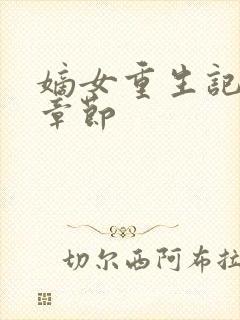 嫡女重生記
章節
切尔西阿布拉